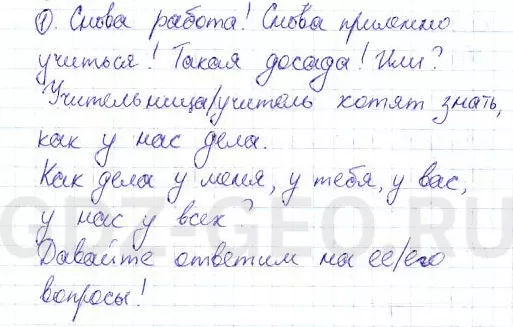 1). Снова работа! Снова прилежно
учиться! Такая досада! Или?
Учительница/учитель хотят знать,
как у нас дела.
Как дела у меня, у тебя, у вас,
у нас у всех?
GDZ-GEO.RU
Давайте ответим на ее/его
вопросы!